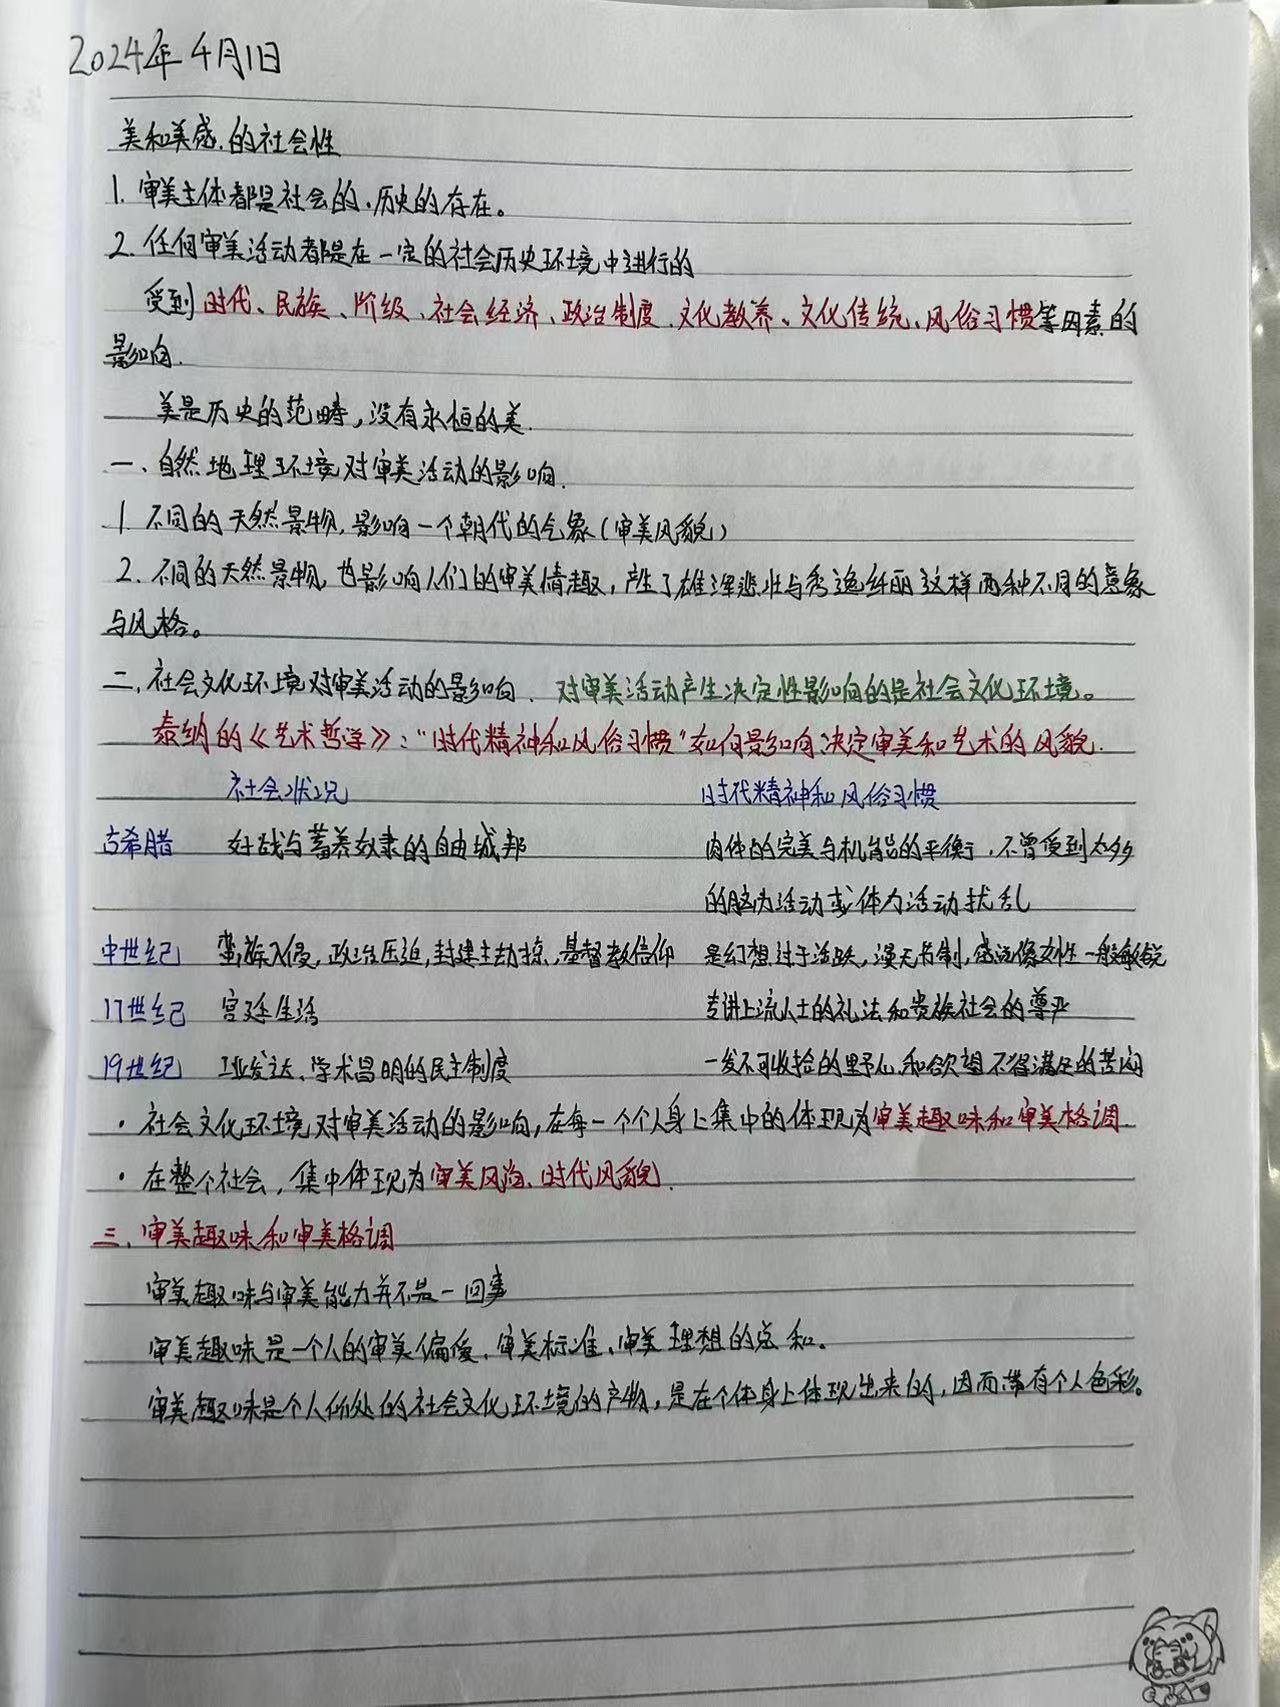 2024年4月1日
美和美感.的社会性
1. 审美主体都是社会的、历史的存在。
2. 任何审美活动都是在一定的社会历史环境中进行的
受到时代、民族、阶级、社会经济、政治制度、文化教养、文化传统、风俗习惯等因素的
影响.
美是历史的范畴,没有永恒的美.
一、自然地理环境对审美活动的影响.
1. 不同的天然景物,影响一个朝代的气象(审美风貌)
2. 不同的天然景物,也影响人们的审美情趣,产生了雄浑悲壮与秀逸纤丽这样两种不同的意象
与风格。
二、社会文化环境对审美活动的影响. 对审美活动产生决定性影响的是社会文化环境。
泰纳的《艺术哲学》:“时代精神和风俗习惯”如何影响决定审美和艺术的风貌.
社会状况 时代精神和风俗习惯
古希腊 好战与蓄养奴隶的自由城邦 肉体的完美与机能的平衡,不曾受到太多
的脑力活动或体力活动扰乱
中世纪 蛮族入侵,政治压迫,封建主劫掠,基督教信仰 是幻想过于活跃,漫无节制,感觉像女性一般敏锐
17世纪 宫廷生活 专讲上流人士的礼法和贵族社会的尊严
19世纪 工业发达、学术昌明的民主制度 一发不可收拾的野心和欲望不得满足的苦闷
· 社会文化环境对审美活动的影响,在每一个个人身上集中的体现为审美趣味和审美格调.
· 在整个社会,集中体现为审美风尚、时代风貌.
三、审美趣味和审美格调
审美趣味与审美能力并不是一回事
审美趣味是一个人的审美偏爱、审美标准、审美理想的总和。
审美趣味是个人所处的社会文化环境的产物,是在个体身上体现出来的,因而带有个人色彩。